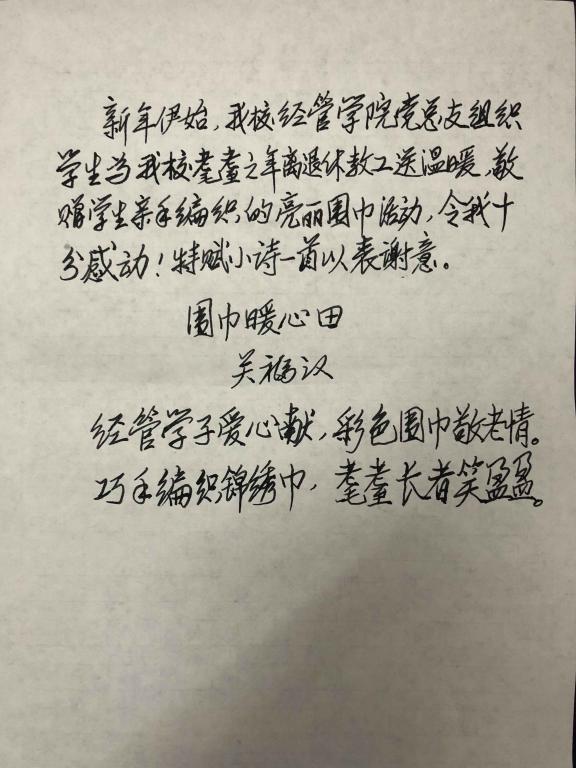 新年伊始，我校经管学院党总支组织
学生为我校耄耋之年离退休教工送温暖，敬
赠学生亲手编织的亮丽围巾活动，令我十
分感动！特赋小诗一首以表谢意。
围巾暖心田
关福汉
经管学子爱心献，彩色围巾敬老情。
巧手编织锦绣巾，耄耋长者笑盈盈。